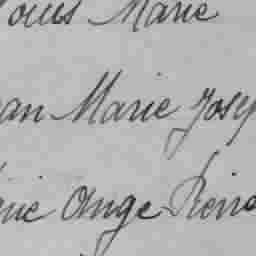 Louis Marie
ean Marie Josep
rie Ange Reine